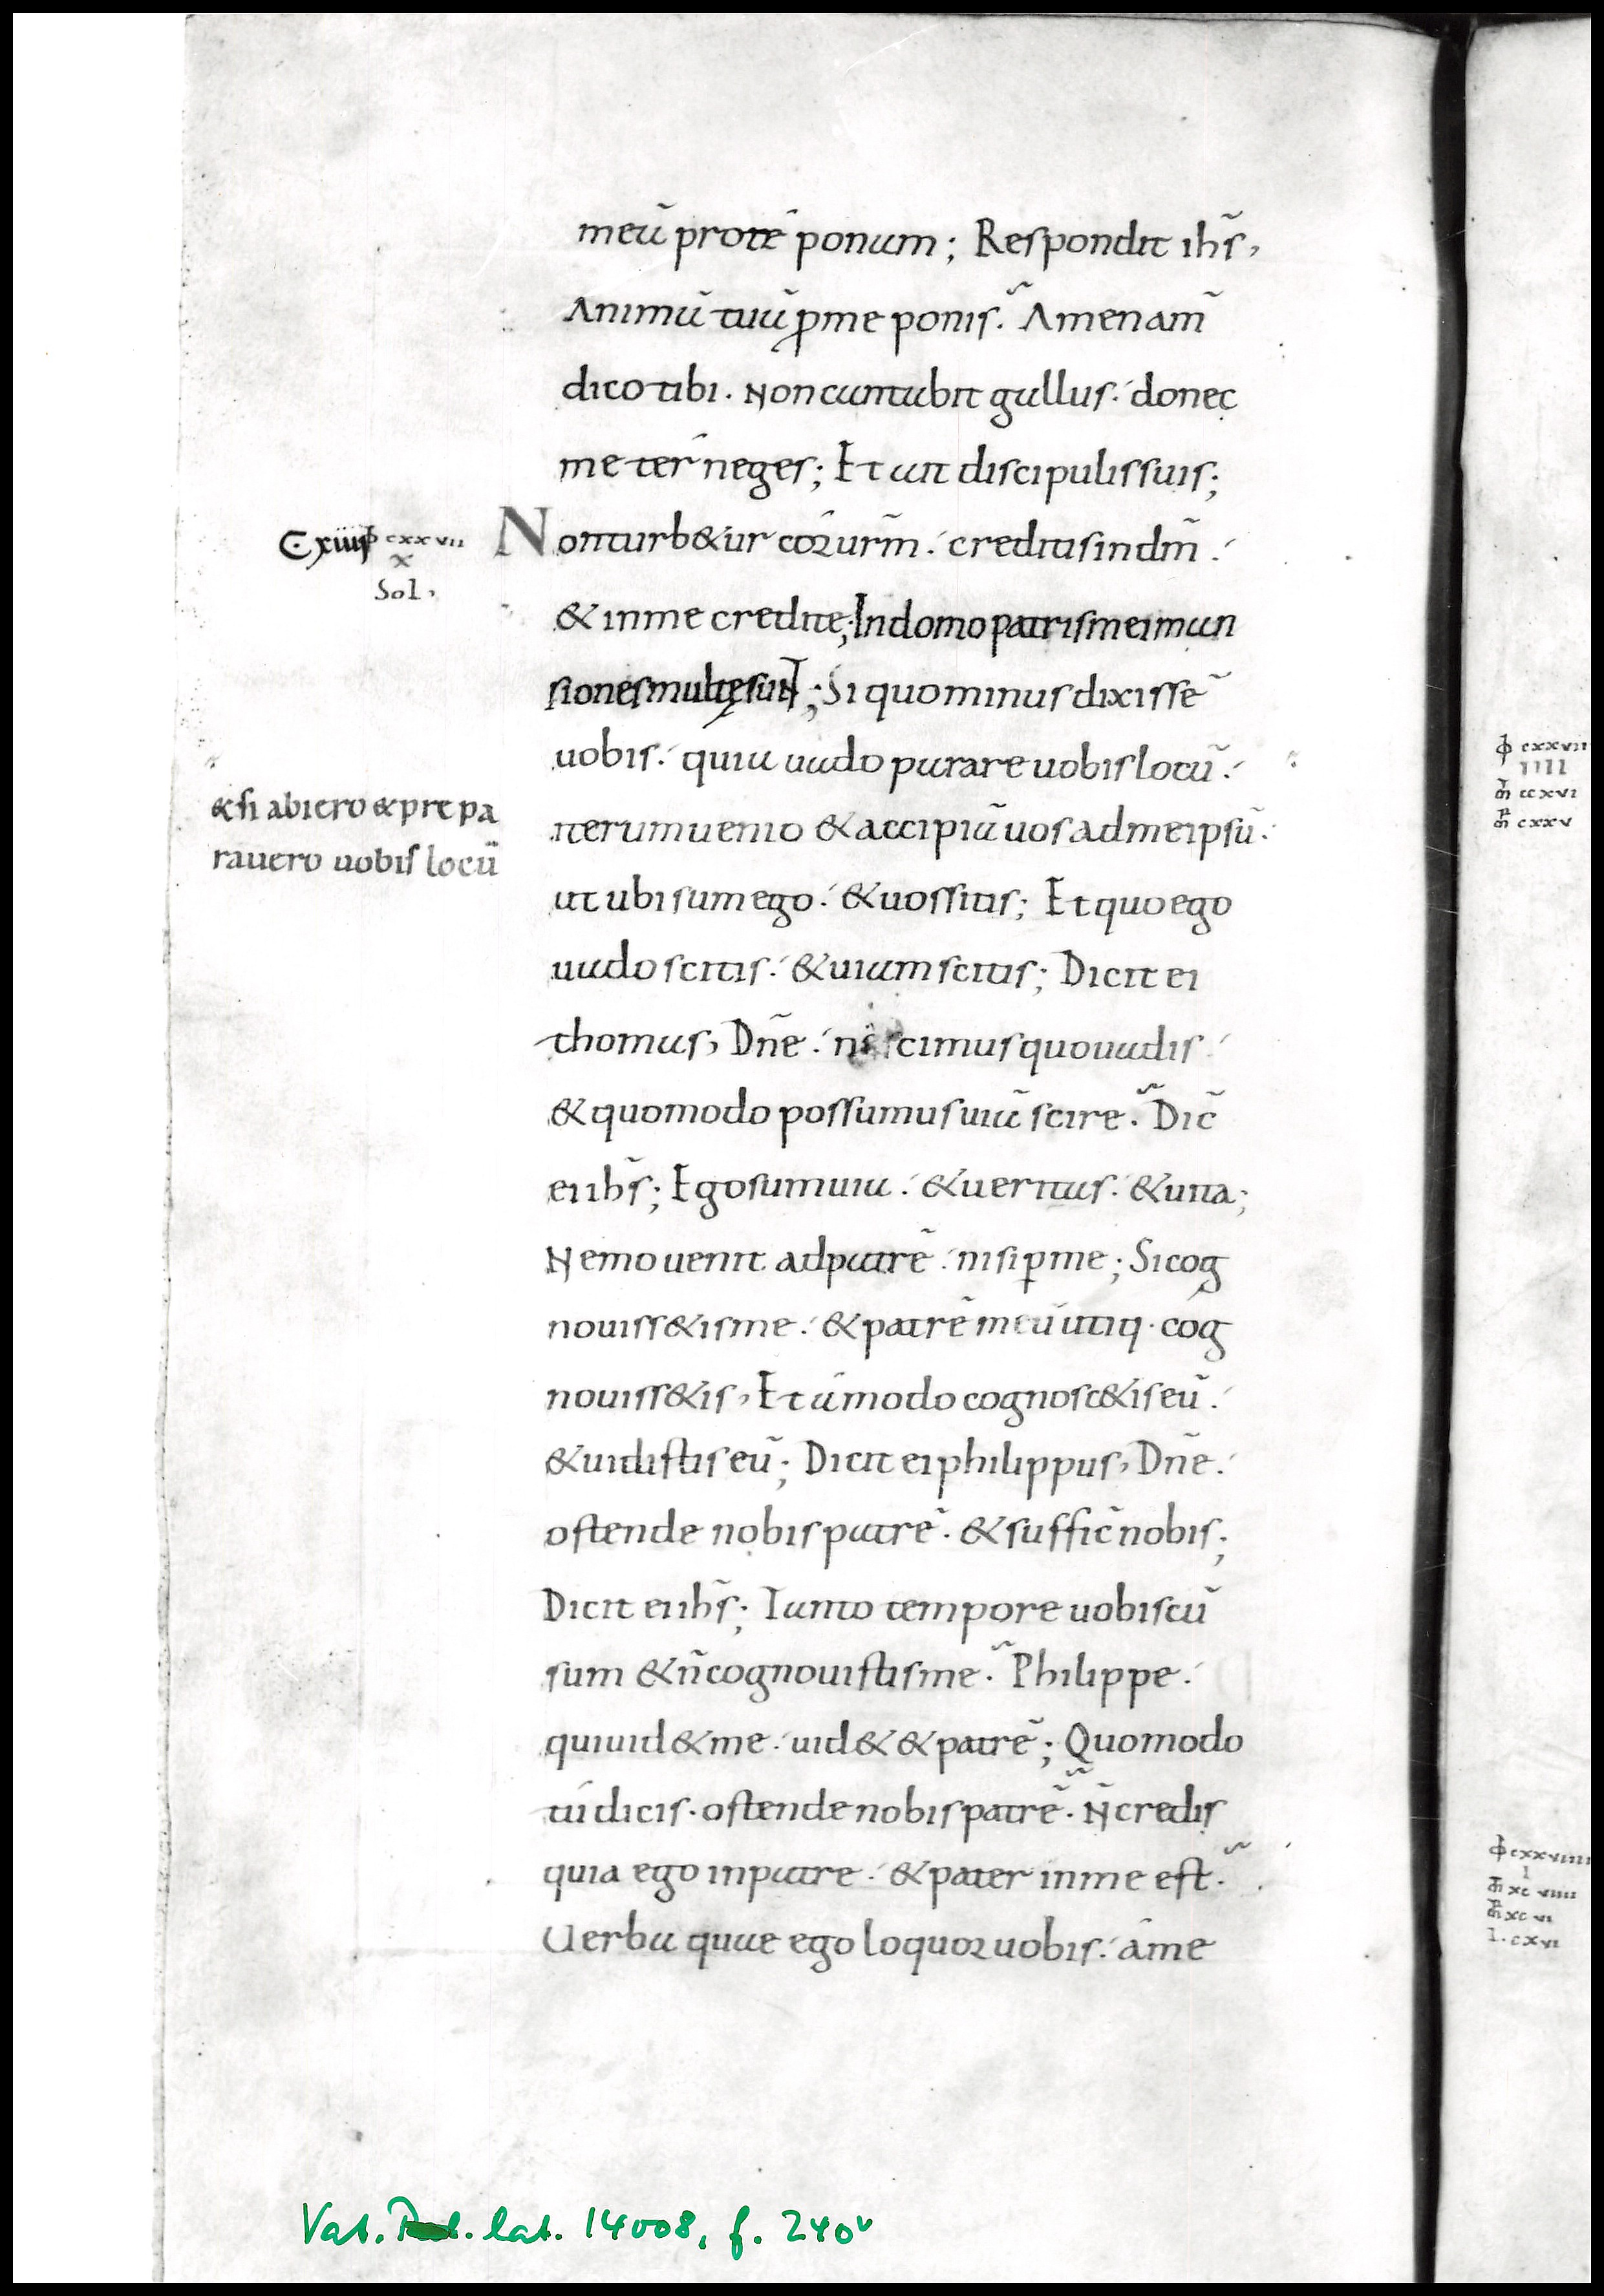 meū pro te ponam; Respondit ihs̄,
Animū tuū ꝓ me ponis. Amen am̄
dico tibi. Non cantabit gallus. donec
me ter neges; Et ait discipulis suis;
C xiiii ɸ cxxvii
x
Sol,
Non turb&ur coꝛ ur̄m. creditis in dm̄.
& in me credite; In domo patris mei man
siones multę sunt; Si quo minus dixissē
uobis. quia uado parare uobis locū.
&si abiero & prepa
rauero uobis locū
iterum uenio & accipiā uos ad me ipsū.
ut ubi sum ego. & uos sitis; Et quo ego
uado scitis. & uiam scitis; Dicit ei
thomas, Dn̄e. nescimus quo uadis.
& quomodo possumus uiā scire. Dic̄
ei ihs̄; Ego sum uia. & ueritas. & uita;
Nemo uenit ad patrē. nisi ꝑ me; Si cog
nouiss&is me. & patrē meū utiq. cog
nouiss&is, Et ā modo cognosc&is eū.
& uidistis eū; Dicit ei philippus, Dn̄e.
ostende nobis patrē. & suffic̄ nobis;
Dicit ei ihs̄; Tanto tempore uobiscū
sum & n̄ cognouistis me. Philippe.
qui uid& me. uid& & patrē; Quomodo
tú dicis. ostende nobis patrē. N̄ credis
quia ego in patre. & pater in me est.
Uerba quae ego loquoꝛ uobis. á me
ɸ cxxvii
iiii
m̄ ccxvi
m̄ cxxv
ɸ cxxviiii
i
m̄ xcviiii
m̄ xcvi
l. cxvi
Vat. lat. 14008, f. 240v